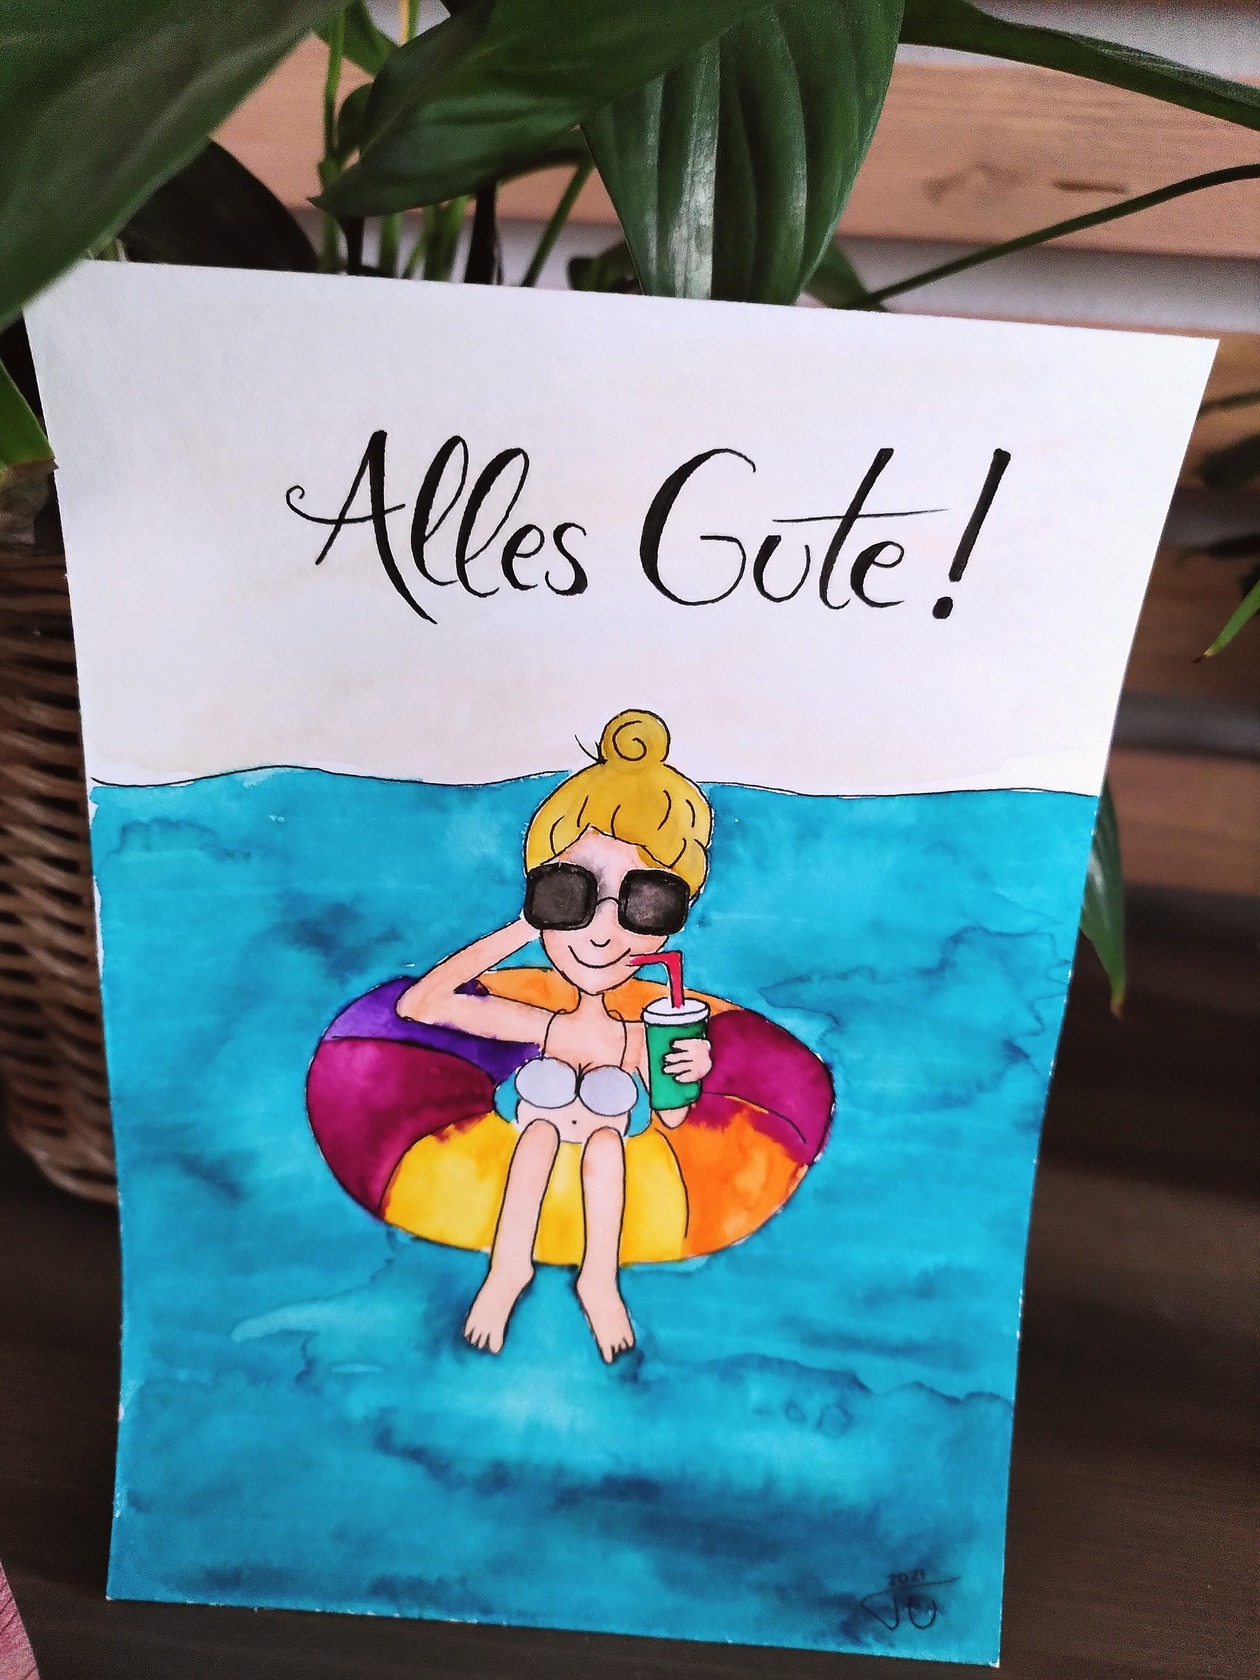 Alles Gute!
2021